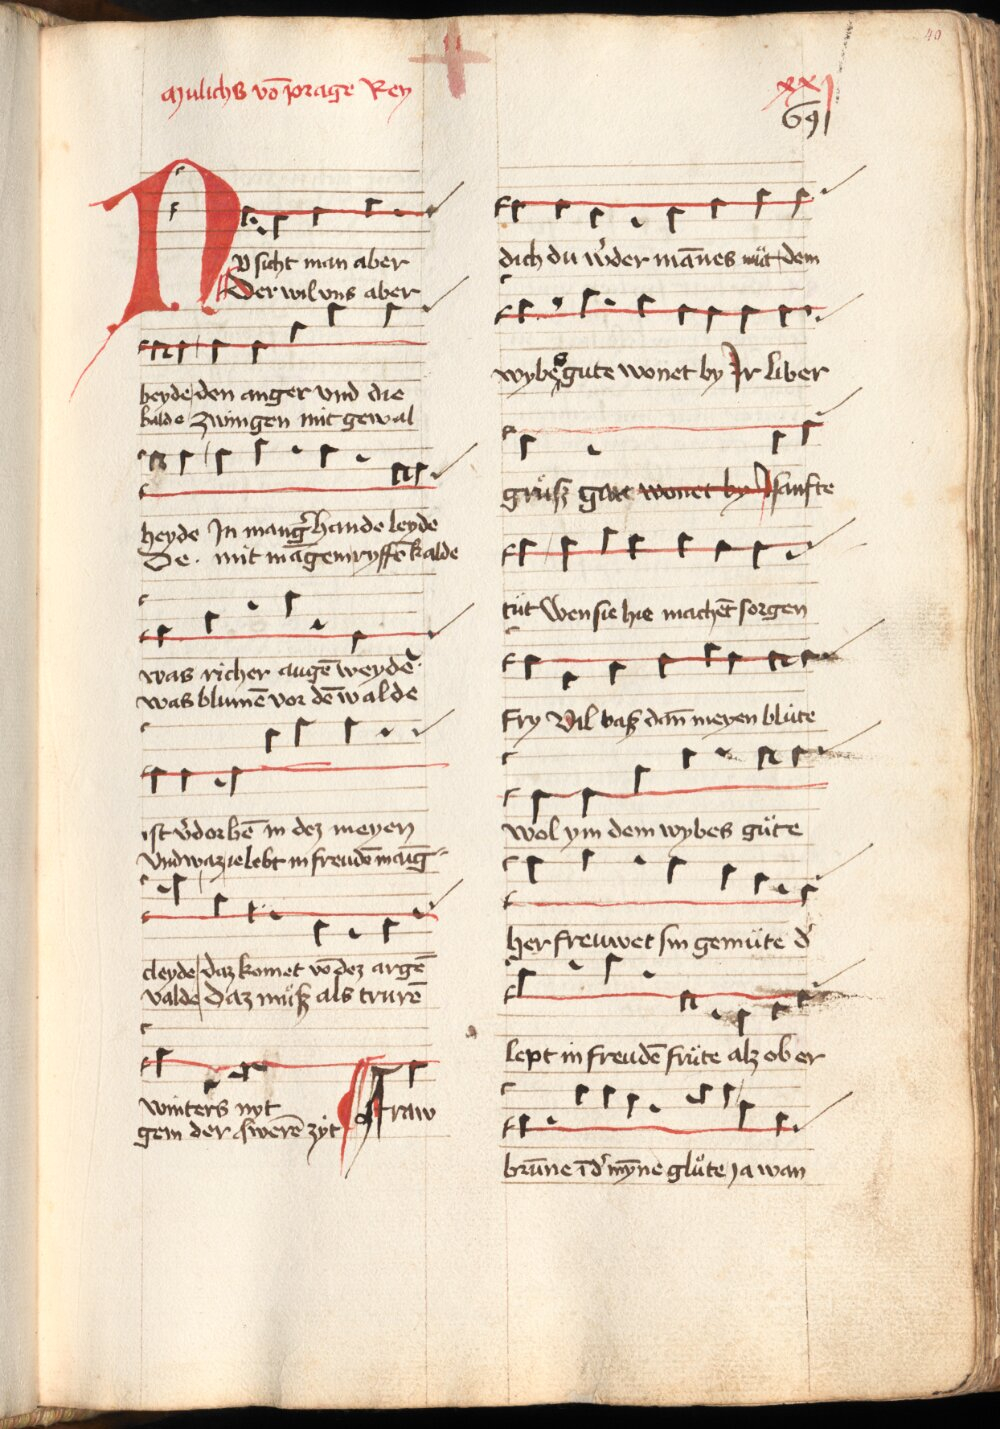 Mulichs vō prage Rey
40
xxj
691
Nv sicht man aber
Der wil vns aber
heyde den anger vnd die
balde zwingen mit gewal
heyde In mang͛ hande leyde
De. mit māgem ryffē kalde
was richer augē weydē
was blumē vor dē walde
ist v͛dorbē in dez meyen
Vnd waz ie lebt in freudē mauḡ
cleyde daz komet vō dez argē
valde Daz muͤsz als trurē
winters nyt
gein der swerē zyt
Fraw
dich du w͛der māues mit dem
wybes gute wonet by Ir liber
gruͤsz gar wonet by sanfte
tuͤt Wen sie hie machet sorgen
fry Vil basz dan̄ meyen bluͤte
wol ym dem wybes guͤte
her freuwet sin gemuͤte d͛
lept in freudē fruͤte alz ob er
brūne ī d͛ mȳne gluͤte ja wan